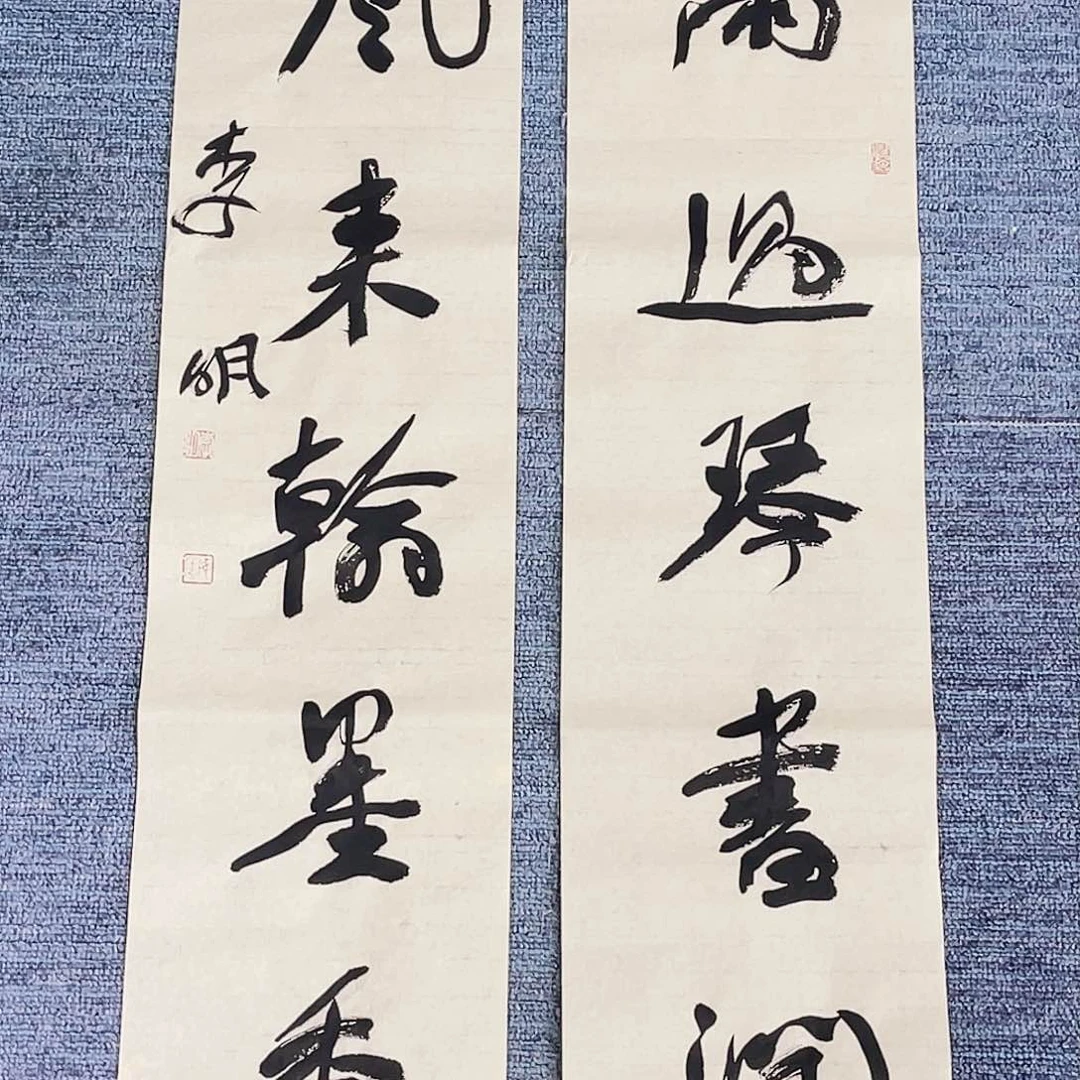 雨過琴書潤
風来翰墨香
李明